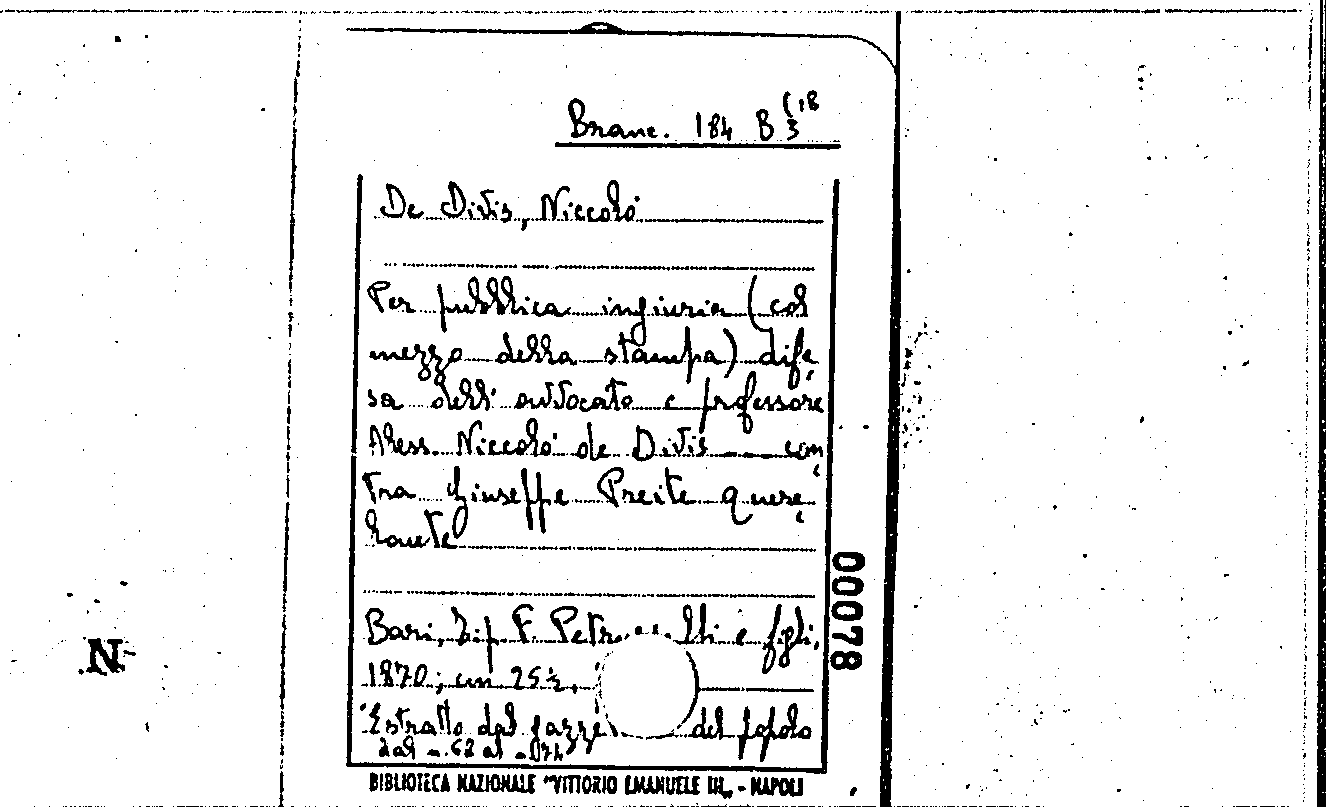 Branc. 184 B 3 (18
De Divis, Niccolò
Per pubblica ingiuria (col
mezzo della stampa) dife
sa dell' avvocato e professore
Aless. Niccolò de Divis con
tra Giuseppe Preite quere
lante
Bari, Tip. F. Petr lli e figli,
1870; cm 25½.
Estratto dal gazze del popolo
dal n. 62 al
BIBLIOTECA NAZIONALE "VITTORIO EMANUELE III„ - NAPOLI
00078
N